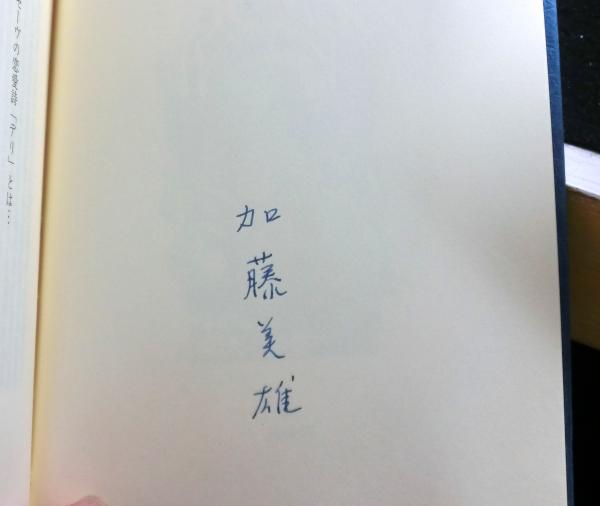 加藤美雄
セーヴの恋愛詩「デリ」とは…